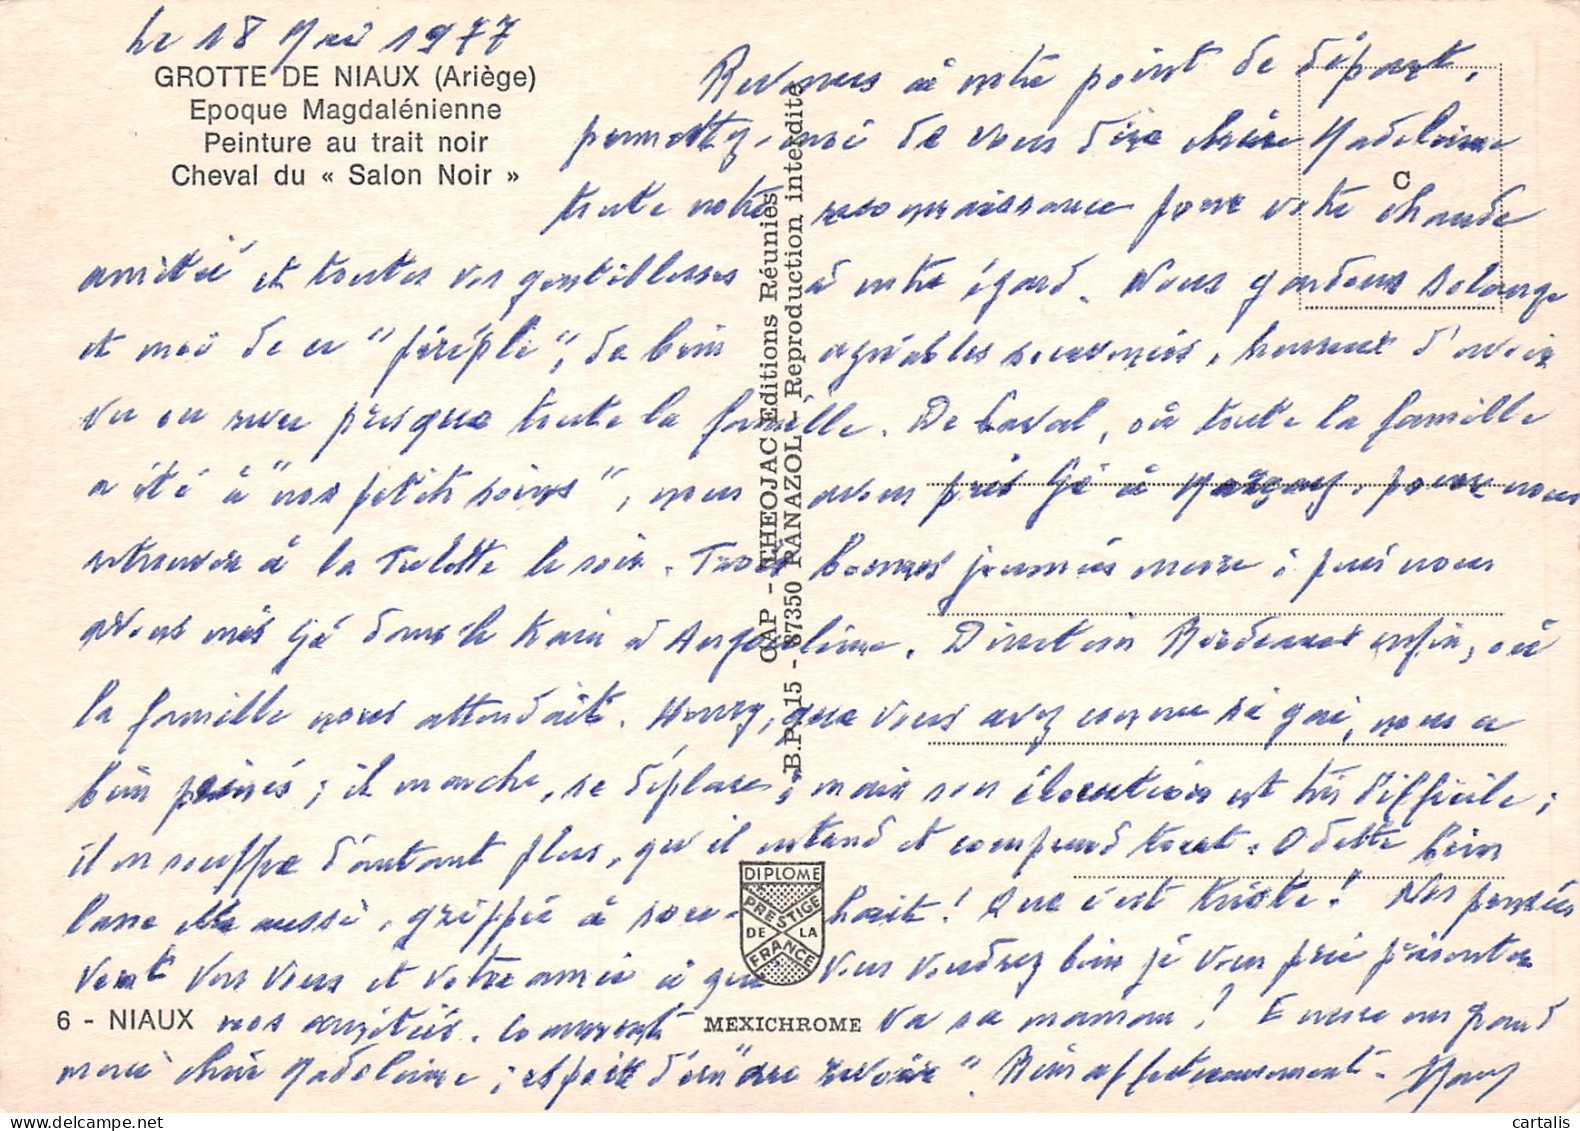 Le 18 Mai 1977
GROTTE DE NIAUX (Ariège)
Epoque Magdalénienne
Peinture au trait noir
Cheval du « Salon Noir »
Revenus à notre point de départ,
permettez-moi de vous dire chère Madeleine
toute notre reconnaissance pour votre chaude
amitié et toutes vos gentillesses à notre égard. Nous gardons Solange
et moi de ce "périple", de bien agréables souvenirs, heureux d'avoir
vu ou revu presque toute la famille. De Laval, où toute la famille
a été à "nos petits soins", nous avons pris à pour nous
retrouver à la le soir. Trois bonnes journées encore ; puis nous
avons mis dans le train à Angoulême. Direction Bordeaux enfin, où
la famille nous attendait. Henry, que vous avez connu si gai, nous a
bien peinés ; il marche, se déplace, mais son élocution est très difficile ;
il en souffre d'autant plus, qu'il entend et comprend tout. Odette bien
lasse elle aussi, grippée à souhait ! Que c'est triste ! Nos pensées
vont vers vous et votre amie à qui vous voudrez bien je vous prie présenter
nos amitiés. Comment va sa maman ? Encore un grand
merci chère Madeleine ; et "au revoir". Bien affectueusement.
CAP - THEOJAC Editions Réunies
B.P. 15 - 87350 PANAZOL - Reproduction interdite
C
DIPLOME
PRESTIGE
DE LA
FRANCE
6 - NIAUX
MEXICHROME
cartalis